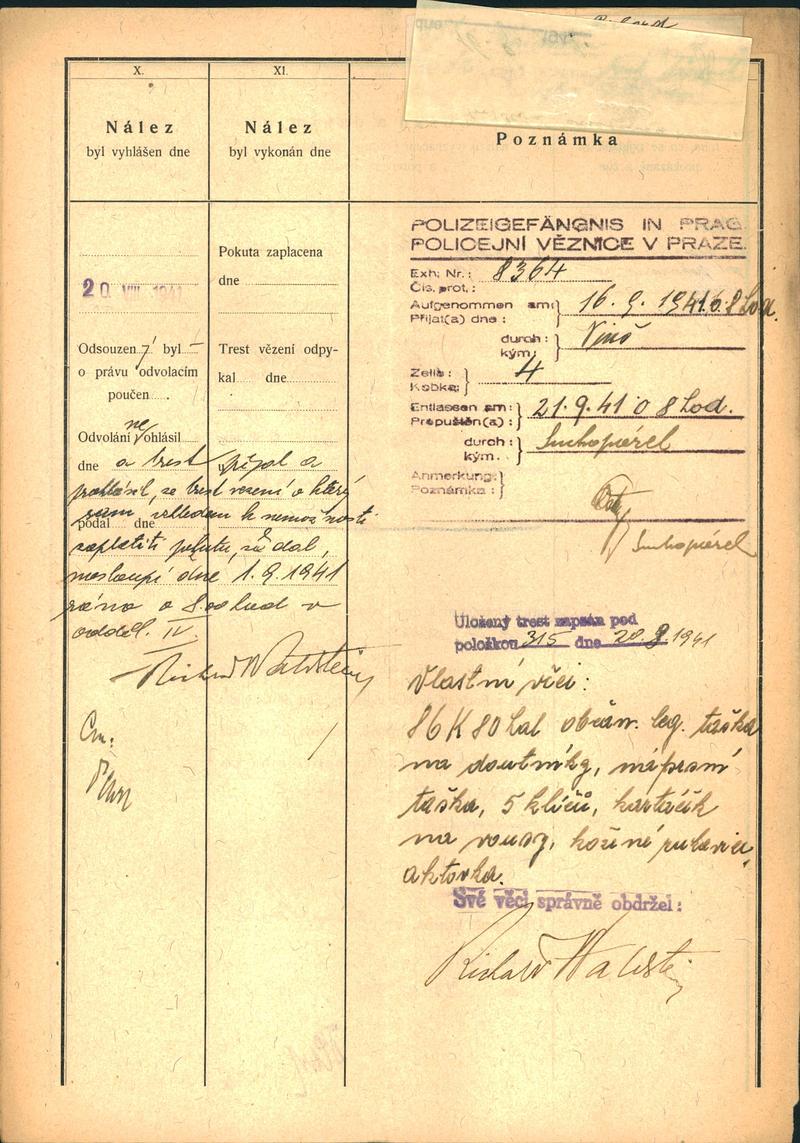 X.
Nález
byl vyhlášen dne
20. VIII. 1941
Odsouzen ý byl
o právu odvolacím
poučen
Odvolání ne ohlásil
dne a trest přijal a
prohlásil, že trest vězení o který
podal dne
žádám vzhledem k nemožnosti
zaplatiti pokutu,
nastoupí dne 1.9.1941
ráno o 8.00 hod v
odděl. IV.
Richard Waldstein
XI.
Nález
byl vykonán dne
Pokuta zaplacena
dne
Trest vězení odpy-
kal dne
u
Poznámka
POLIZEIGEFÄNGNIS IN PRAG.
POLICEJNÍ VĚZNICE V PRAZE.
Exh. Nr.: 8364
Čís. prot.:
Aufgenommen am: 16. 9. 1941 o 8 hod.
Přijat(a) dne:
durch:
kým:
Zelle: 4
Kobka:
Entlassen am: 21.9.41 o 8 hod.
Propuštěn(a):
durch: Suchopárek
kým.
Anmerkung:
Poznámka:
Suchopárek
Uložený trest zapsán pod
položkou 315 dne 20.8.1941
Vlastní věci:
86 K 80 hal občan. leg. taška
na doutníky, náprsní
taška, 5 klíčů, kartáček
na vousy, kožené rukavice,
aktovka.
Své věci správně obdržel:
Richard Waldstein